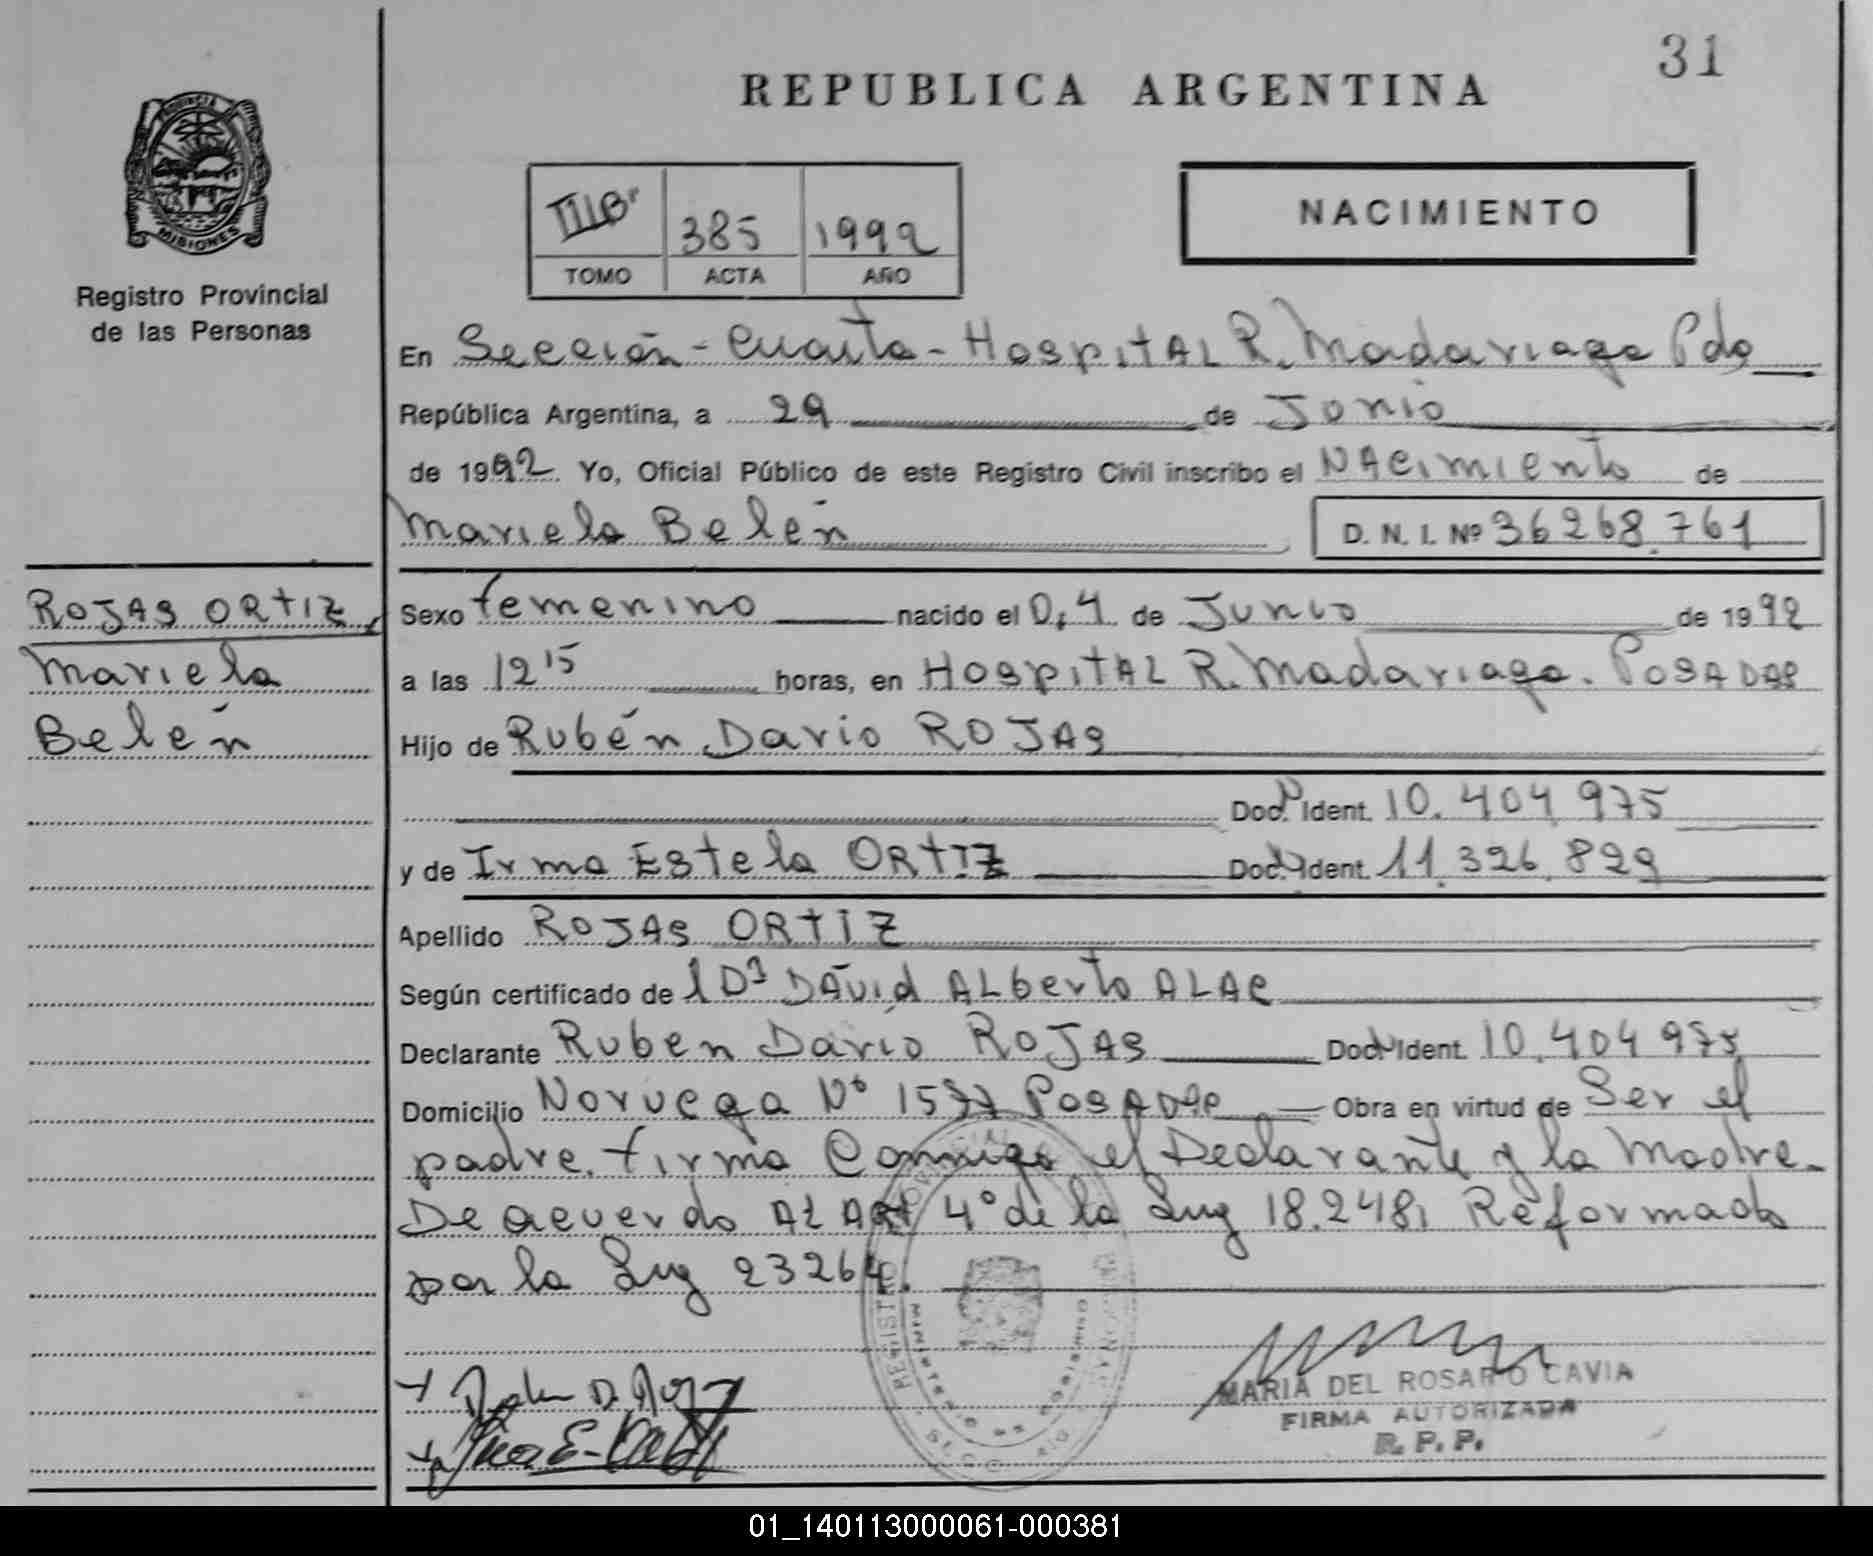 31
REPUBLICA ARGENTINA
PROVINCIA
MISIONES
Registro Provincial
de las Personas
385 1992
TOMO ACTA AÑO
NACIMIENTO
En Sección - Cuarta - Hospital R. Madariaga Pdas
República Argentina, a 29 de Junio
de 1992 Yo, Oficial Público de este Registro Civil inscribo el Nacimiento de
Mariela Belén D. N. I. Nº 36268.761
ROJAS ORTIZ,
Mariela
Belén
Sexo femenino nacido el 0,4 de Junio de 1992
a las 12 15 horas, en Hospital R. Madariaga. Posadas
Hijo de Rubén Dario ROJAS
Doc. N Ident. 10.404.975
y de Irma Estela ORTIZ Doc. N Ident. 11.326.829
Apellido ROJAS ORTIZ
Según certificado de David Alberto ALAC
Declarante Ruben Dario ROJAS Doc N Ident. 10.404 975
Domicilio Noruega Nº Posadas Obra en virtud de Ser el
padre. firma Conmigo el Declarante y la Madre.
De acuerdo Al Art 4º de la Ley 18.248, Reformado
por la Ley 23264.
MARIA DEL ROSARO CAVIA
FIRMA AUTORIZADA
R. P. P.
01_140113000061-000381